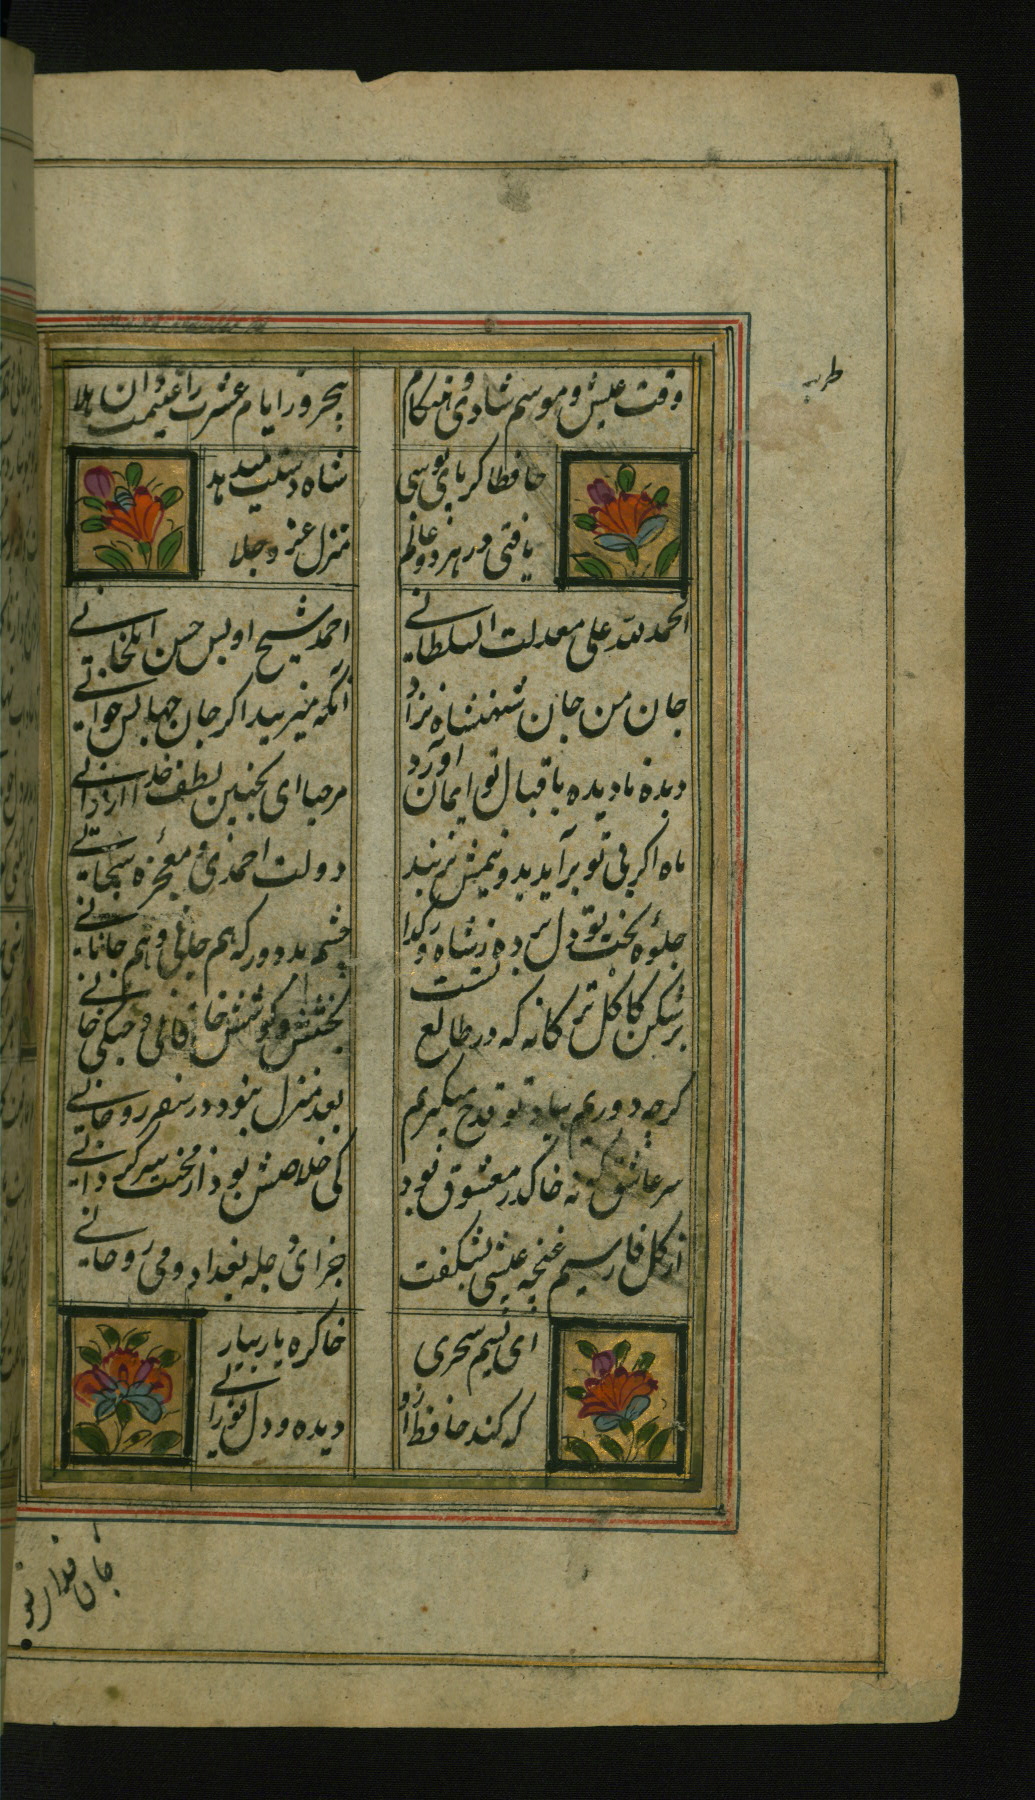 وقت عیش و موسم شادی و هنکام
طرب
پنجروز ایام عشرت را غنیمت دان هلا
حافظا کر پای بوسی
یافتی در هر دو عالم
شاه دستت میدهد
منزل عز و علا
الحمد لله علی معدلت السلطانی
احمد شیخ اویس حسن ایلخانی
جان من جان شهنشاه نژاد
آنکه میزیبد اکر جان جهانش خوانی
دیده نادیده باقبال تو ایمان آورد
مرحبا ای بچنین لطف خدا ارزانی
ماه اکر بی تو برآید بدو نیمش بزنند
دولت احمدی و معجزه سبحانی
جلوه بخت تو دل برده ز شاه و کدا
چشم بد دور که هم جانی و هم جانانی
برشکن کاکل ترکانه که در طالع تست
بخشش و کوشش خاقانی و چنکیزخانی
کرچه دوریم بیاد تو قدح میکیریم
بعد منزل نبود در سفر روحانی
سر عاشق که نه خاک در معشوق بود
کی خلاصش بود از محنت سرکردانی
از کل فارسیم غنچه عیشی نشکفت
حبذا دجله بغداد و می روحانی
ای نسیم سحری
خاک ره یار بیار
که کند حافظ ازو
دیده و دل نورانی
جان فدای تو